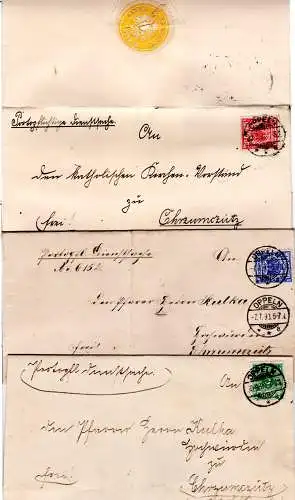 Portopflichtige Dienstsache.
OPPELN
An
den Katholischen Kirchen-Vorstand
zu
frei!
Chrzumczütz
Portopfl. Dienstsache
No. 6152
An
OPPELN
den Pfarrer Herrn Kulka
OPPELN
-2.7.93.6-7.N
Hochwürden
frei!
Chrzumczütz
Portopfl. Dienstsache.
An
OPPELN
den Pfarrer Herrn Kulka
Hochwürden
zu
frei!
Chrzumczütz